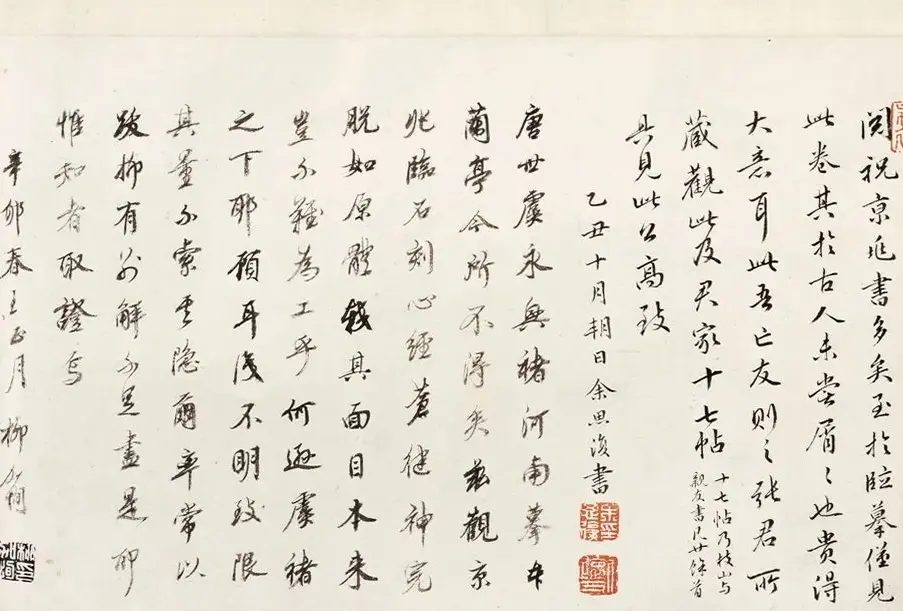 閱祝京兆書多矣至於臨摹僅見
此卷其於古人未嘗屑〻也貴得
大意耳此吾亡友則之張君所
藏觀此及君家十七帖
十七帖乃枝山与
親友書尺廿餘首
具見此公高致
乙丑十月朔日余思復書
唐世虞永興褚河南摹本
蘭亭今所不得矣茲觀京
兆臨石刻心經蒼健神完
脫如原體錢其面目本來
豈不難為工乎何遜虞褚
之下耶顧耳淺不明致限
其量不索其隱爾率常以
跋抑有別解不足盡是聊
惟知者取證焉
辛卯春王正月柳